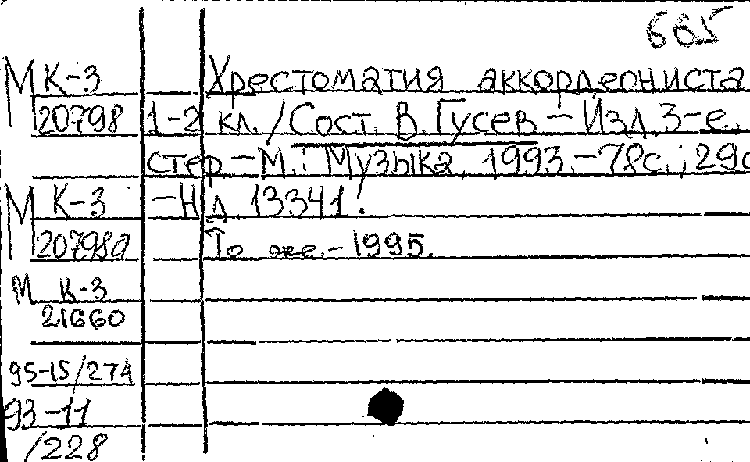 665
М К-3 Хрестоматия аккордеониста
20798 1-2 кл. / Сост. В. Гусев. - Изд. 3-е,
стер. - М.: Музыка, 1993. - 78с.; 29с
М К-3 - Н д. 13341.
20798а То же. - 1995.
М К-3
21660
95-15/274
93-11
/228